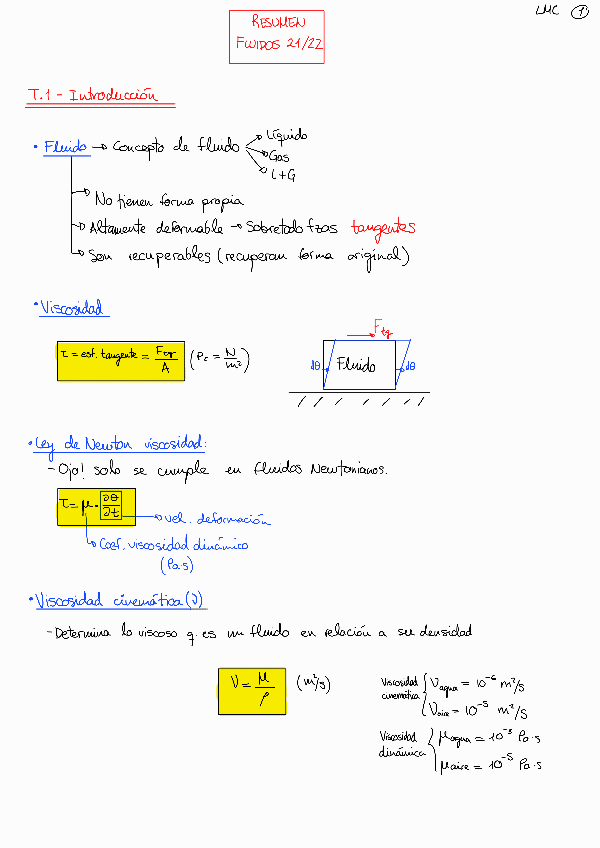 LMC 1
RESUMEN
FLUIDOS 21/22
T.1 - Introducción
• Fluido → Concepto de fluido → Líquido
→ Gas
→ L+G
→ No tienen forma propia
→ Altamente deformable → Sobretodo fzas tangentes
→ Son recuperables (recuperan forma original)
• Viscosidad
τ = esf. tangente = Ftg / A (Pa = N/m²)
Ftg
dθ Fluido dθ
• Ley de Newton viscosidad:
- Ojo! solo se cumple en fluidos Newtonianos.
τ = μ · ∂θ/∂t
→ vel. deformación
→ Coef. viscosidad dinámico
(Pa·s)
• Viscosidad cinemática (ν)
- Determina lo viscoso q. es un fluido en relación a su densidad
ν = μ/ρ (m²/s)
Viscosidad cinemática { νagua = 10⁻⁶ m²/s
νaire = 10⁻⁵ m²/s
Viscosidad dinámica { μagua = 10⁻³ Pa·s
μaire = 10⁻⁵ Pa·s